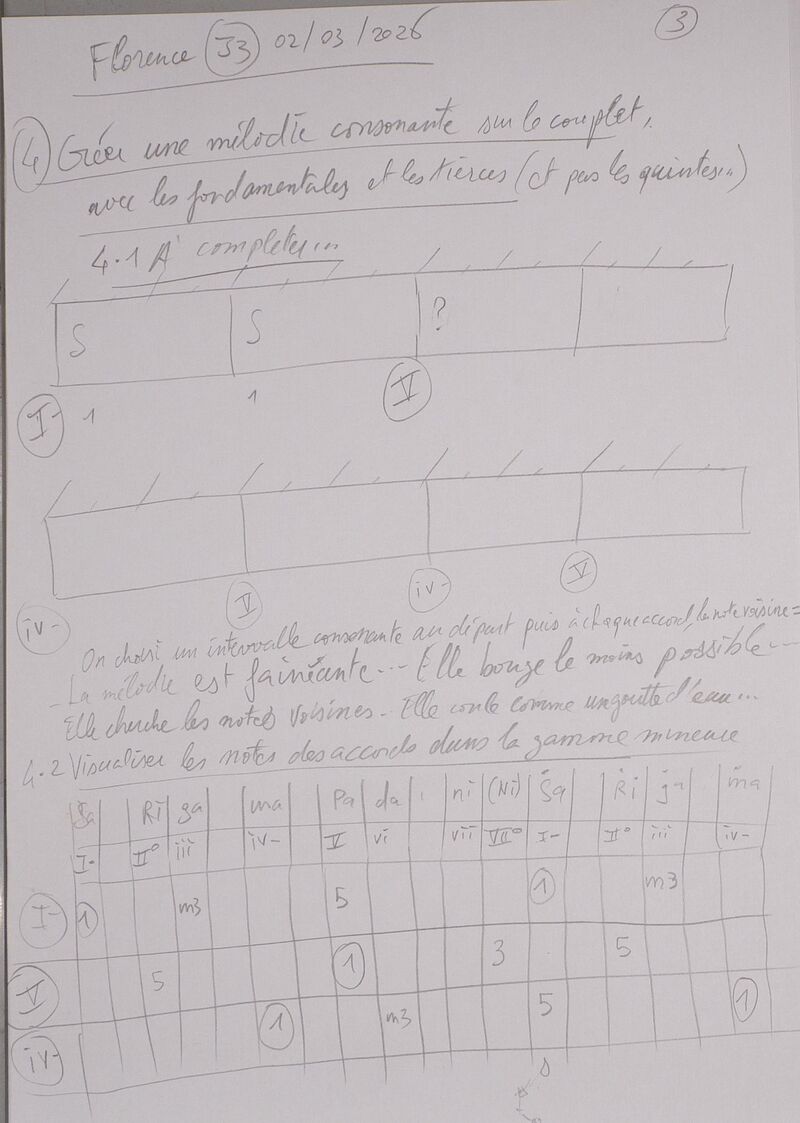 Florence J3 02/03/2026
3
4 Créer une mélodie consonante sur le couplet,
avec les fondamentales et les tierces (et pas les quintes...)
4.1 A completer...
S S ?
I- 1 1 V
iv- V iv- V
On choisi un intervalle consonante au départ puis à chaque accord, la note voisine =
- La mélodie est fainéante... Elle bouge le moins possible...
Elle cherche les notes voisines. Elle coule comme un goutte d'eau...
4.2 Visualiser les notes des accords dans la gamme mineure
Sa Ri ga ma Pa da ni (Ni) Ṡa Ṙi ġa ṁa
I- II° iii iv- V vi vii VII° I- II° iii iv-
I- 1 m3 5 1 m3
V 5 1 3 5
iv- 1 m3 5 1